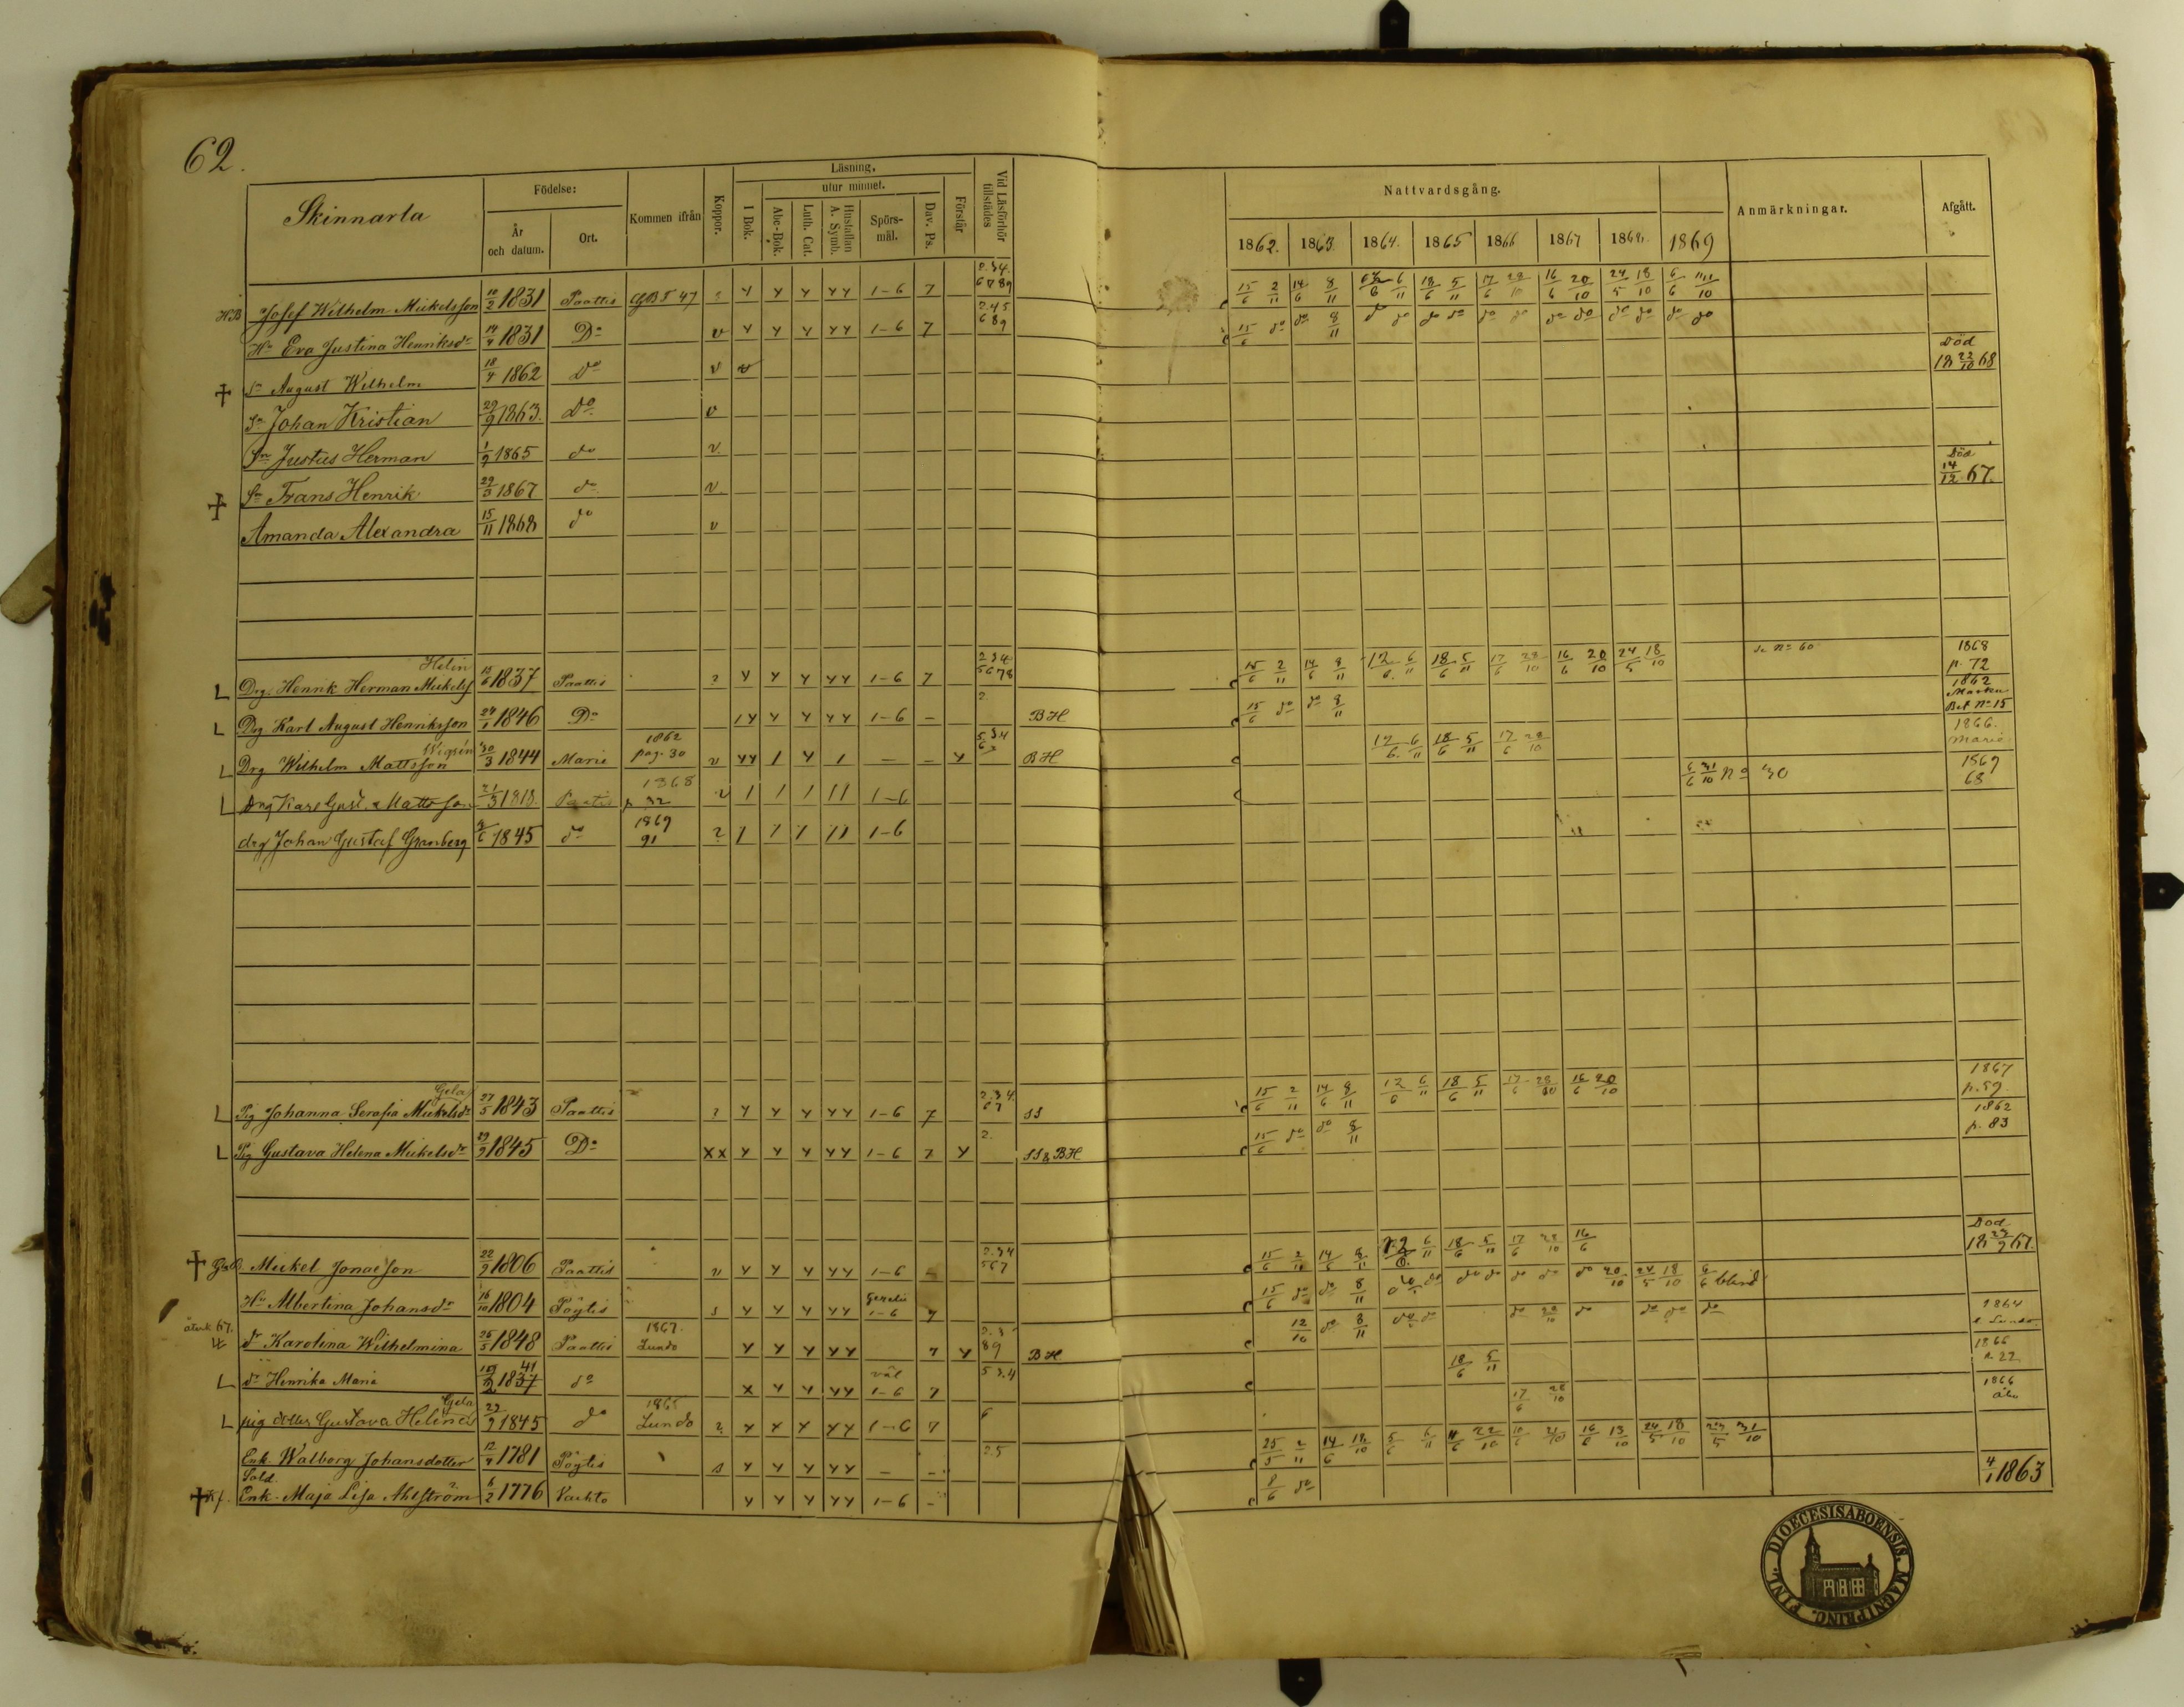 62.
Skinnarla
Födelse:
År och datum.
Ort.
Kommen ifrån
Koppor.
Läsning,
I Bok.
utur minnet.
Abc-Bok.
Luth. Cat.
Hustaflan A. Symb.
Spörs-mål.
Dav. Ps.
Förstår
Vid Läsförhör tillstädes
Nattvardsgång.
1862. 1863. 1864. 1865 1866 1867 1868. 1869
Anmärkningar.
Afgått.
HB Josef Wilhelm Mickelsson 1831 Paattis 47 1-6 7 15/6 2/11 14/6 8/11 6/11 18/6 5/11 17/6 28/10 16/6 20/10 24/5 18/10 6/6
Hu Eva Justina Henriksdr 14/9 1831 Do v 1-6 7 15/6 do do 8/11 do do do do do do do do do do do do
† Sn August Wilhelm 18/4 1862 Do v Död 18 23/10 68
Sn Johan Kristian 29/9 1863. Do v
Sn Justus Herman 1/9 1865 do v
† Sn Frans Henrik 29/3 1867 do v Död 14/12 67.
Amanda Alexandra 15/11 1868 do v
L Drg. Henrik Herman Mickelss Helin 15/6 1837 Paattis 1-6 7 15/6 2/11 14/6 8/11 12/6 6/11 18/6 5/11 17/6 28/10 16/6 20/10 24/5 18/10 se No 60 1868 p. 72
L Drg Karl August Henriksson 24/1 1846 Do 1-6 - 2. BH 15/6 do do 8/11 1862 Masku Bet No 15
L Drg Wilhelm Mattsson 30/3 1844 Marie 1862 pag. 30 v BH 12/6 6/11 18/6 5/11 17/6 28/10 1866. Marie
L Drg Karl Gust. Mattsson 21/3 1818. Paattis 1868 p 32 v 1-6 6/6 31/10 No 30 1869 68
drg Johan Gustaf Granberg 1845 do 1869 91 1-6
L Pig Johanna Serafia Mickelsdr Gela 27/5 1843 Paattis 1-6 7 2.3.4. 67 SS 15/6 2/11 14/6 8/11 12/6 6/11 18/6 5/11 17/6 28/10 16/6 20/10 1867 p. 59.
L Pig Gustava Helena Mickelsdr 29/9 1845 Do xx 1-6 7 2. SS & BH 15/6 do do 8/11 1862 p. 83
† Mickel Jonasson 22/9 1806 Paattis v 1-6 - 2.34 567 15/6 2/11 14/6 8/11 12/6 6/11 18/6 5/11 17/6 28/10 16/6 Död 18 23/9 67.
Hu Albertina Johansdr 16/10 1804 Pöytis 1-6 7 15/6 do do 8/11 do do do do do do do 20/10 24/5 18/10 6/6 blind
återk. 67. dr Karolina Wilhelmina 26/5 1848 Paattis 1867. Lundo 7 2.3 89 BH 12/10 do 8/11 do do do 28/10 do do do do 1864 t. Lundo
L dr Henrika Maria 1837 41 do väl 1-6 7 5 3.4 18/6 5/11 1866 p. 22
L pig dotter Gustava Helena Gela 29/9 1845 do 1865 Lundo 1-6 7 6 17/6 28/10 1866 Åbo
Enk. Walborg Johansdotter 12/9 1781 Pöytis s - - 2.5 2/11 14/6 18/10 5/6 6/11 22/10 18/10 24/5 18/10 31/10
† Sold. Enk. Maja Lisa Ahlström 6/2 1776 Vachto 1-6 - 8/6 do 4/1 1863
DIOECESISABOENSIS. MAGNIPRINC. FINL.